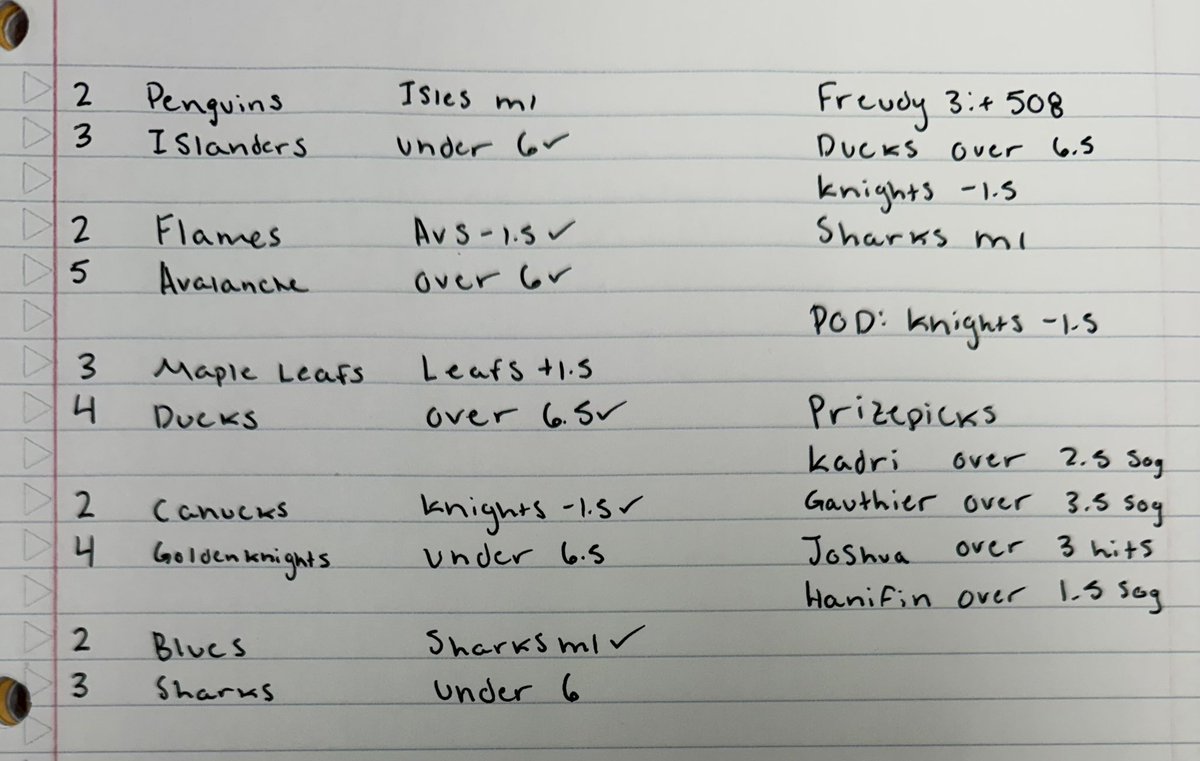 2 Penguins Isles ml Freudy 3: + 508
3 Islanders under 6✓ Ducks over 6.5
knights -1.5
2 Flames Avs -1.5 ✓ Sharks ml
5 Avalanche over 6✓
POD: knights -1.5
3 Maple Leafs Leafs +1.5
4 Ducks over 6.5✓ Prizepicks
Kadri over 2.5 sog
2 Canucks knights -1.5✓ Gauthier over 3.5 sog
4 Goldenknights under 6.5 Joshua over 3 hits
Hanifin over 1.5 sog
2 Blues Sharks ml ✓
3 Sharks under 6